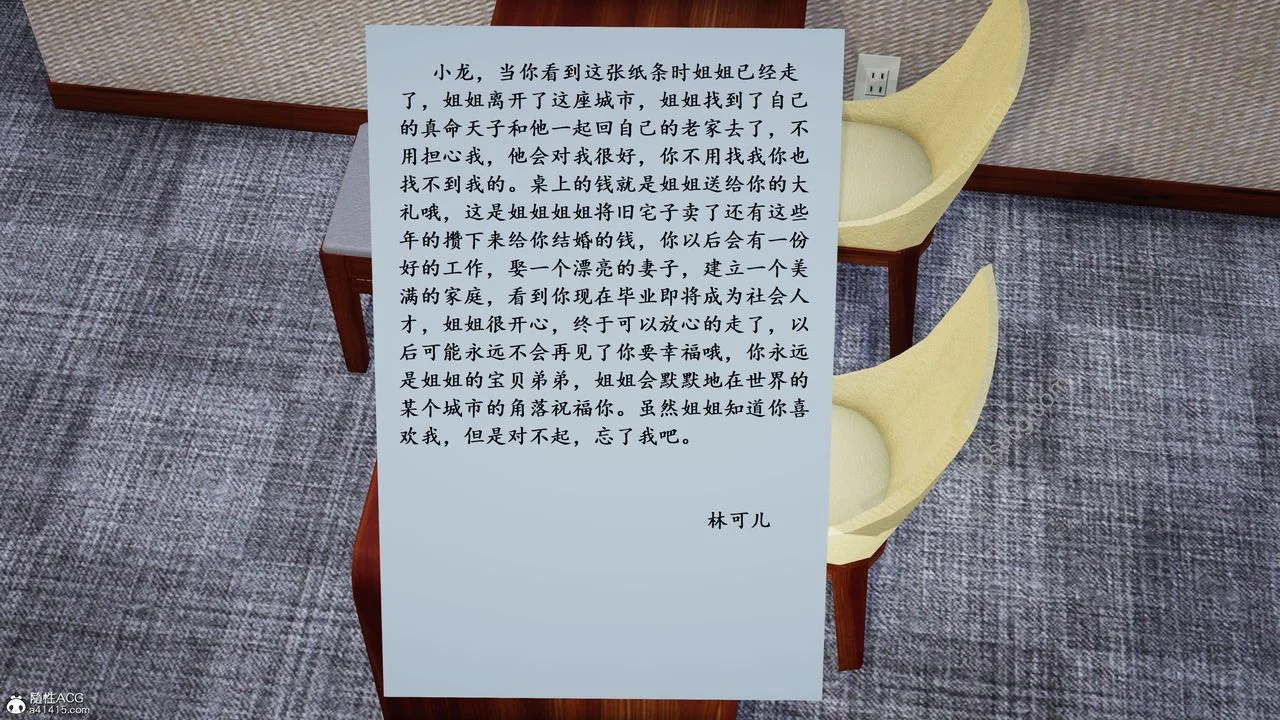 小龙，当你看到这张纸条时姐姐已经走
了，姐姐离开了这座城市，姐姐找到了自己
的真命天子和他一起回自己的老家去了，不
用担心我，他会对我很好，你不用找我你也
找不到我的。桌上的钱就是姐姐送给你的大
礼哦，这是姐姐姐姐将旧宅子卖了还有这些
年的攒下来给你结婚的钱，你以后会有一份
好的工作，娶一个漂亮的妻子，建立一个美
满的家庭，看到你现在毕业即将成为社会人
才，姐姐很开心，终于可以放心的走了，以
后可能永远不会再见了你要幸福哦，你永远
是姐姐的宝贝弟弟，姐姐会默默地在世界的
某个城市的角落祝福你。虽然姐姐知道你喜
欢我，但是对不起，忘了我吧。
林可儿
隨性ACG
a41415.com